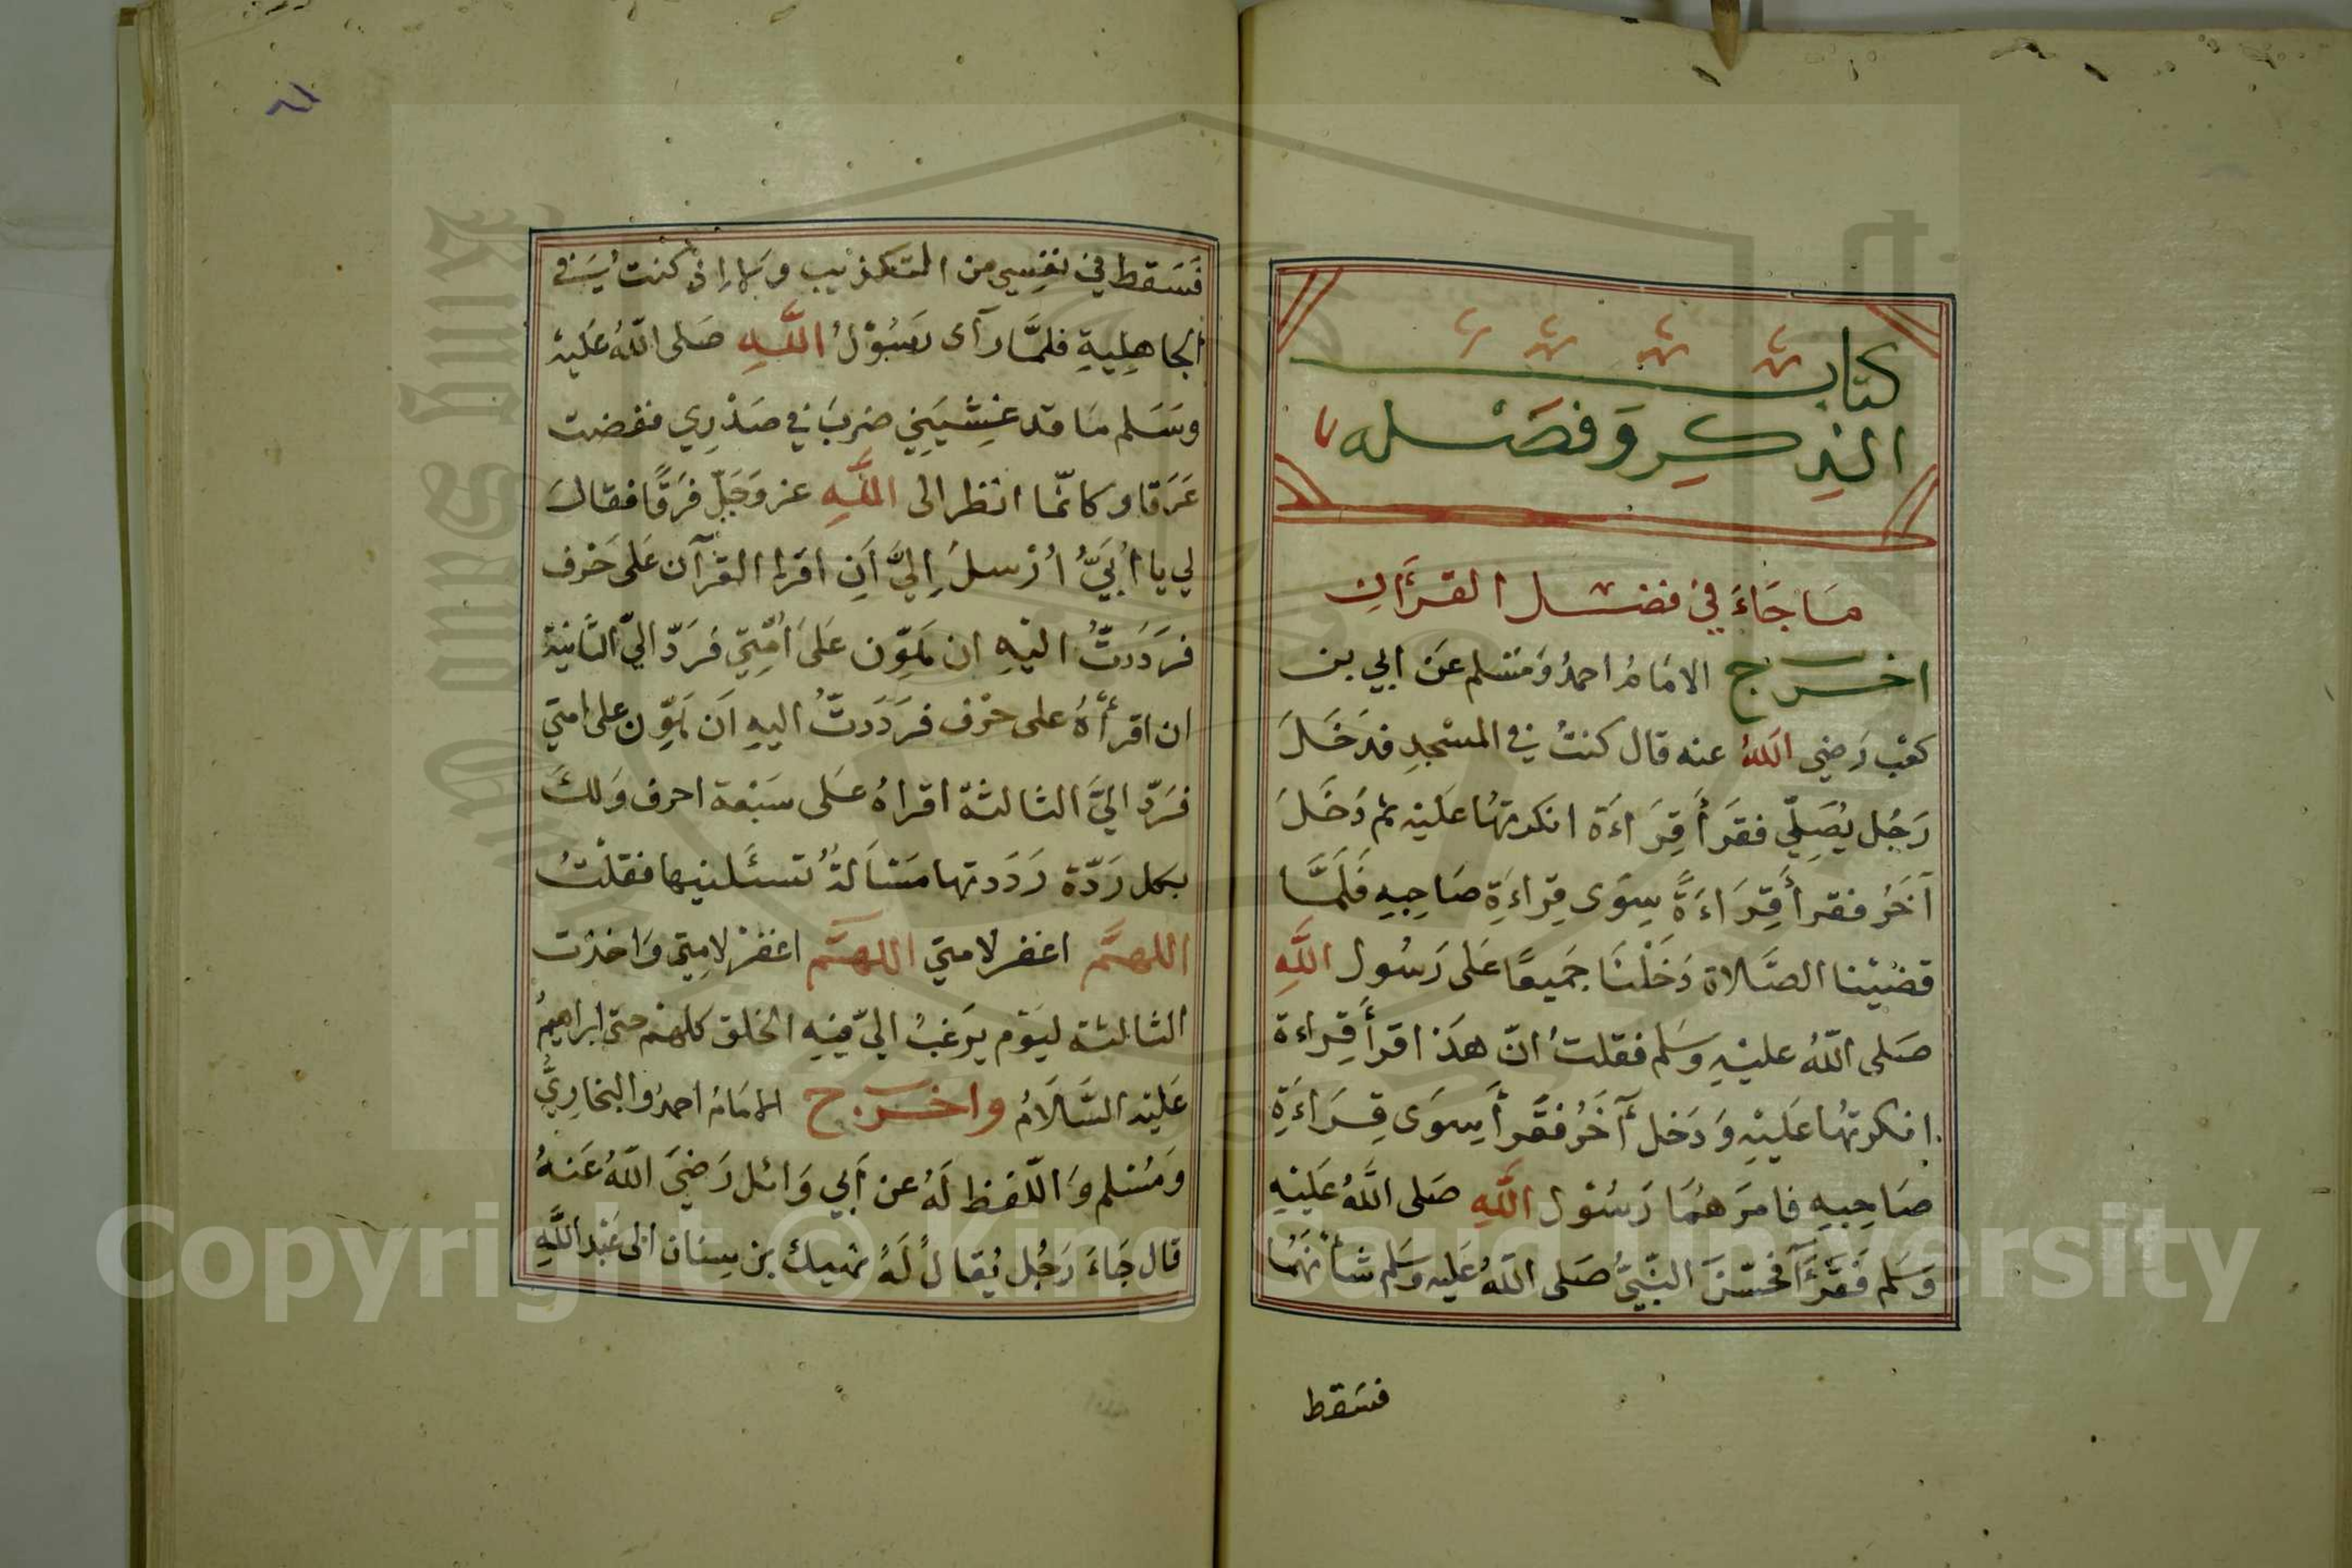 كتاب
الذِكرِ وَفضْله
مَا جَاءَ في فضْل القرَآنِ
اخرج الامَامُ احمدُ وَمسْلم عَن ابي بن
كعْب رَضي اللهُ عنه قال كنتُ في المسْجدِ فدَخَلَ
رَجُل يُصَلّي فقرَأ قِرَاءَة انكرتهُا عَليْه ثم دَخَلَ
آخَرُ فقرأ قِرَاءَةً سِوَى قِراءَةِ صَاحِبِهِ فَلَمَّا
قضيْنا الصَّلاة دَخَلْنَا جَميعًا عَلى رَسُول اللَّهِ
صَلى اللّهُ عليْهِ وسَلم فقلتُ انّ هذا قرأ قِراءة
انكرتهُا عَليْهِ وَدَخل آخَرُ فقَرأ سِوَى قِرَاءَةِ
صَاحِبِهِ فامرَهُمَا رَسُوْل اللَّهِ صَلى اللَّهُ عَليْهِ
وَسَلم فَقَرَءَآ فحَسّنَ النّبيُّ صَلى اللّهُ عَليه وسَلم شأنهُمَا
فسَقط
فَسَقط في نفِسي من التكذيب ولا إذ كنت في
الجاهِليةِ فلمَّا رآى رَسُوْلُ اللَّهِ صَلى اللّهُ عَليْهِ
وسَلم مَا قد غشِيَني ضربَ في صَدْرِي ففضت
عَرَقا وكانّما انظر الى اللَّهِ عز وَجَلّ فرَقًا فقالَ
لي يا اُبَيُّ اُرْسلَ إِليَّ اَنِ اقرا القرْآن عَلى حَرْف
فرَدَدتُّ اليْهِ ان هَوّن عَلى اُمّتِي فرَدّ اليّ الثّانيَة
ان اقرأهُ على حرْف فرَدَدتُّ اليهِ اَن هَوّن على امتي
فرَدّ اليَّ الثالثة اقراهُ عَلى سَبْعة احرف وَلكَ
بكل رَدّة رَدَدتها مَسْاَلةٌ تسئَلنيها فقلْتُ
اللهمَّ اغفر لامتي اللهمَّ اغفرْ لامتِي وَاخرْت
الثالثة ليَوْم يرَغبُ اليّ فيْهِ الخلق كلهمْ حتى ابراهيمُ
عَليْه السَّلَامُ واخرج الامَامُ احمدُ والبخارِيُّ
وَمُسْلم وَاللّفظ لَهُ عن اَبي وَائل رَضيَ اللّهُ عَنهُ
قال جَاءَ رَجُل يُقالُ لَهُ نهيك بن سِنان الى عَبْد اللَّهِ
Copyright © King Saud University
King Saud University